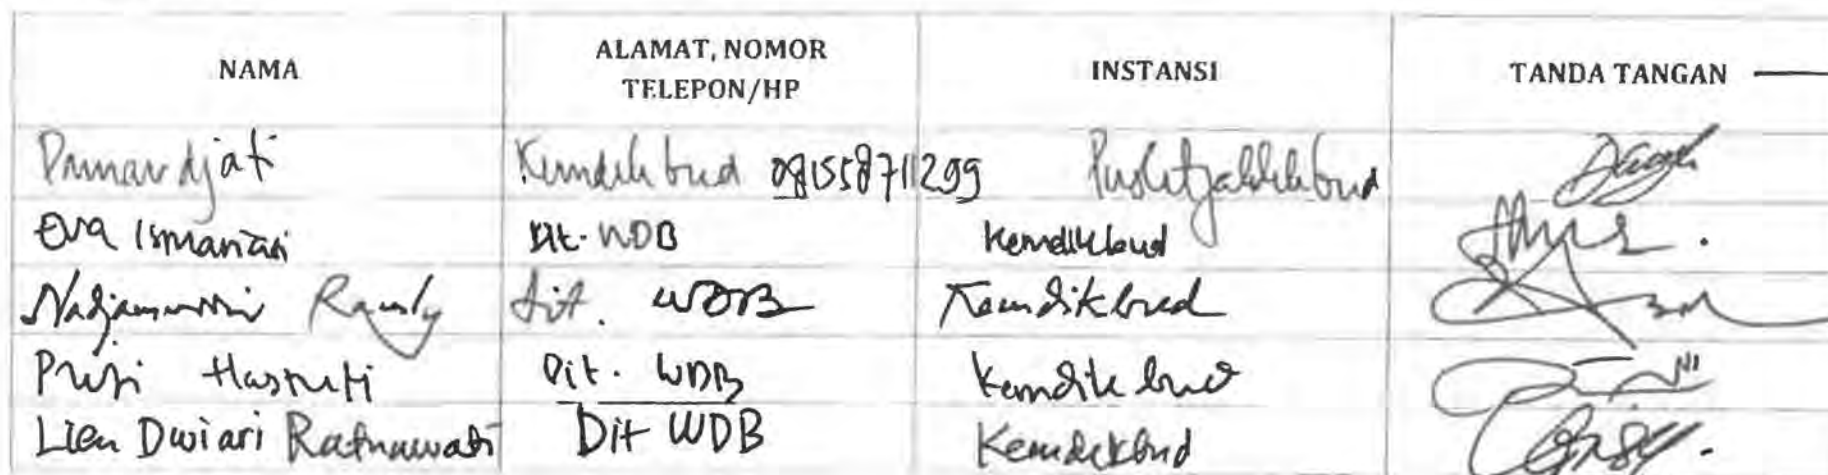 NAMA ALAMAT, NOMOR TELEPON/HP INSTANSI TANDA TANGAN
Damardjati Kemdikbud 081558711299 Puslitjakdikbud
Eva Ismantari Dit. WDB Kemdikbud
Nadjamuddin Ramly Dit. WDB Kemdikbud
Hastuti Dit. WDB Kemdikbud
Lien Dwiari Ratnawati Dit WDB Kemdikbud